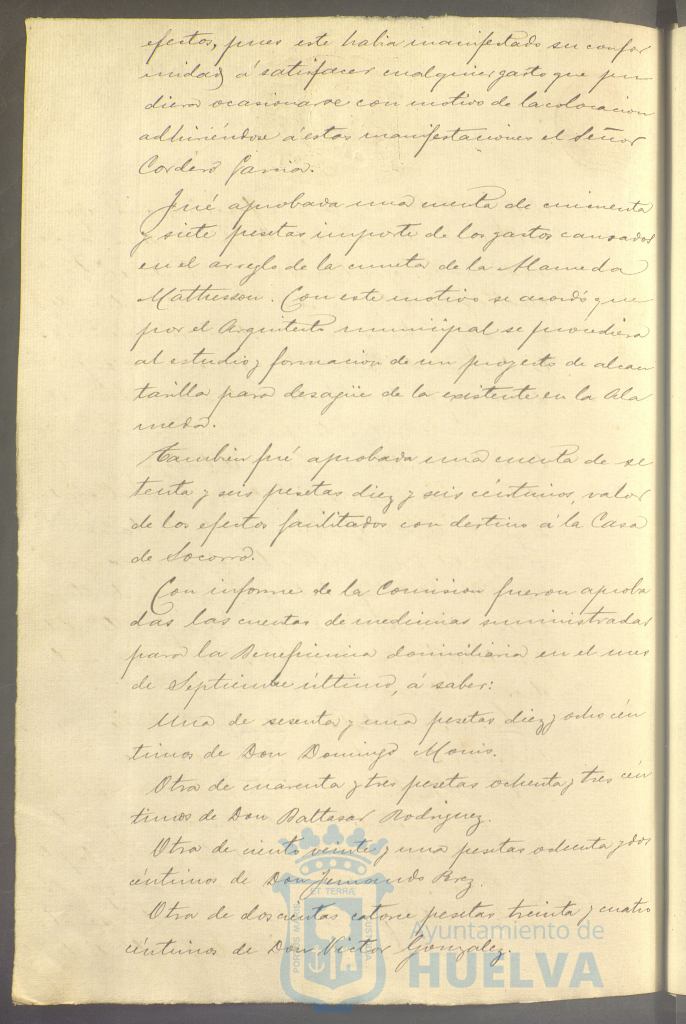 efectos, pues este habia manifestado su confor
midad á satisfacer cualquier gasto que pu
diera ocasionarse con motivo de la colocacion
adhiriéndose á estas manifestaciones el Señor
Cordero Garcia.
Fué aprobada una cuenta de cincuenta
y siete pesetas importe de los gastos causados
en el arreglo de la cuneta de la Alameda
Mathesson. Con este motivo se acordó que
por el Arquitecto municipal se procediera
al estudio y formacion de un proyecto de alcan
tarilla para desagüe de la existente en la Ala
meda.
Tambien fué aprobada una cuenta de se
tenta y seis pesetas diez y seis céntimos, valor
de los efectos facilitados con destino á la Casa
de Socorro.
Con informe de la Comision fueron aproba
das las cuentas de medicinas suministradas
para la Beneficencia domiciliaria en el mes
de Septiembre último, á saber:
Una de sesenta y una pesetas diez y ocho cén
timos de Don Domingo
Otra de cuarenta y tres pesetas ochenta y tres cén
timos de Don Baltasar Rodriguez.
Otra de ciento veinte y una pesetas ochenta y dos
céntimos de Don Fernando
Otra de doscientas catorce pesetas treinta y cuatro
céntimos de Don Victor Gonzalez.
PORTUS MARIS ET TERRAE CUSTODIA
Ayuntamiento de
HUELVA